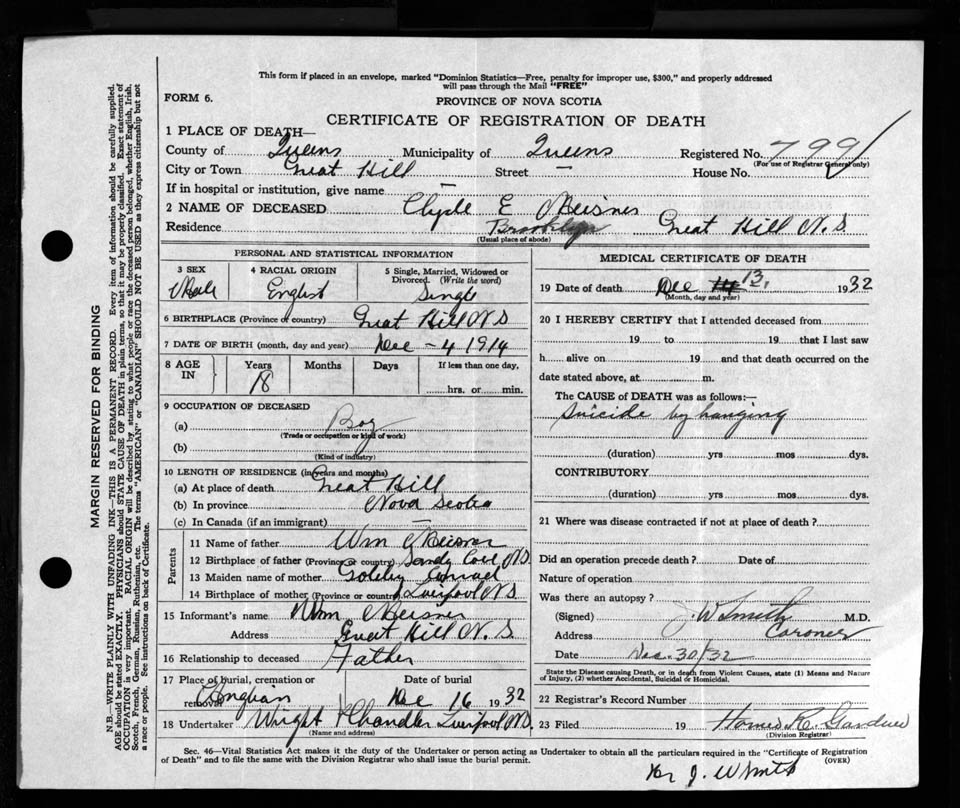 This form if placed in an envelope, marked "Dominion Statistics—Free, penalty for improper use, $300," and properly addressed
will pass through the Mail "FREE"
FORM 6.
PROVINCE OF NOVA SCOTIA
CERTIFICATE OF REGISTRATION OF DEATH
1 PLACE OF DEATH—
County of Queens Municipality of Queens Registered No. 799
(For use of Registrar General only)
City or Town Great Hill Street — House No.
If in hospital or institution, give name —
2 NAME OF DECEASED Clyde E Meisner
Residence Brooklyn Great Hill N.S.
(Usual place of abode)
PERSONAL AND STATISTICAL INFORMATION
3 SEX 4 RACIAL ORIGIN 5 Single, Married, Widowed or Divorced. (Write the word)
Male English Single
6 BIRTHPLACE (Province or country) Great Hill N.S
7 DATE OF BIRTH (month, day and year) Dec - 4 1914
8 AGE IN Years Months Days If less than one day,
18 hrs. or min.
9 OCCUPATION OF DECEASED
(a) Boy
(Trade or occupation or kind of work)
(b)
(Kind of industry)
10 LENGTH OF RESIDENCE (in years and months)
(a) At place of death Great Hill
(b) In province Nova Scotia
(c) In Canada (if an immigrant) —
Parents
11 Name of father Wm Meisner
12 Birthplace of father (Province or country) Sandy Cove N.S.
13 Maiden name of mother Conrad
14 Birthplace of mother (Province or country) Liverpool N.S
15 Informant's name Wm Meisner
Address Great Hill N.S.
16 Relationship to deceased Father
17 Place of burial, cremation or removal Date of burial
Dec 16 1932
18 Undertaker Wright & Chandler Liverpool N.S.
(Name and address)
MEDICAL CERTIFICATE OF DEATH
19 Date of death Dec 14 13, 1932
(Month, day and year)
20 I HEREBY CERTIFY that I attended deceased from
19 to 19 that I last saw
h alive on 19 and that death occurred on the
date stated above, at m.
The CAUSE of DEATH was as follows:—
Suicide by hanging
(duration) yrs mos dys.
CONTRIBUTORY
(duration) yrs. mos. dys.
21 Where was disease contracted if not at place of death?
Did an operation precede death? Date of
Nature of operation
Was there an autopsy?
(Signed) J. W Smith M.D.
Address Coroner
Date Dec. 30/32
State the Disease causing Death, or in death from Violent Causes, state (1) Means and Nature
of Injury, (2) whether Accidental, Suicidal or Homicidal.
22 Registrar's Record Number
23 Filed 19 Gardner
(Division Registrar)
Sec. 46—Vital Statistics Act makes it the duty of the Undertaker or person acting as Undertaker to obtain all the particulars required in the "Certificate of Registration
of Death" and to file the same with the Division Registrar who shall issue the burial permit.
(OVER)
per J. W Smith
MARGIN RESERVED FOR BINDING
N.B.—WRITE PLAINLY WITH UNFADING INK—THIS IS A PERMANENT RECORD. Every item of information should be carefully supplied.
AGE should be stated EXACTLY. PHYSICIANS should STATE CAUSE OF DEATH in plain terms, so that it may be properly classified. Exact statement of
OCCUPATION is very important. RACIAL ORIGIN will be described by stating to what people or race the deceased person belonged, whether English, Irish,
Scotch, French, German, Russian, Ruthenian, etc. The terms "AMERICAN" or "CANADIAN" SHOULD NOT BE USED as they express citizenship but not
a race or people. See instructions on back of Certificate.